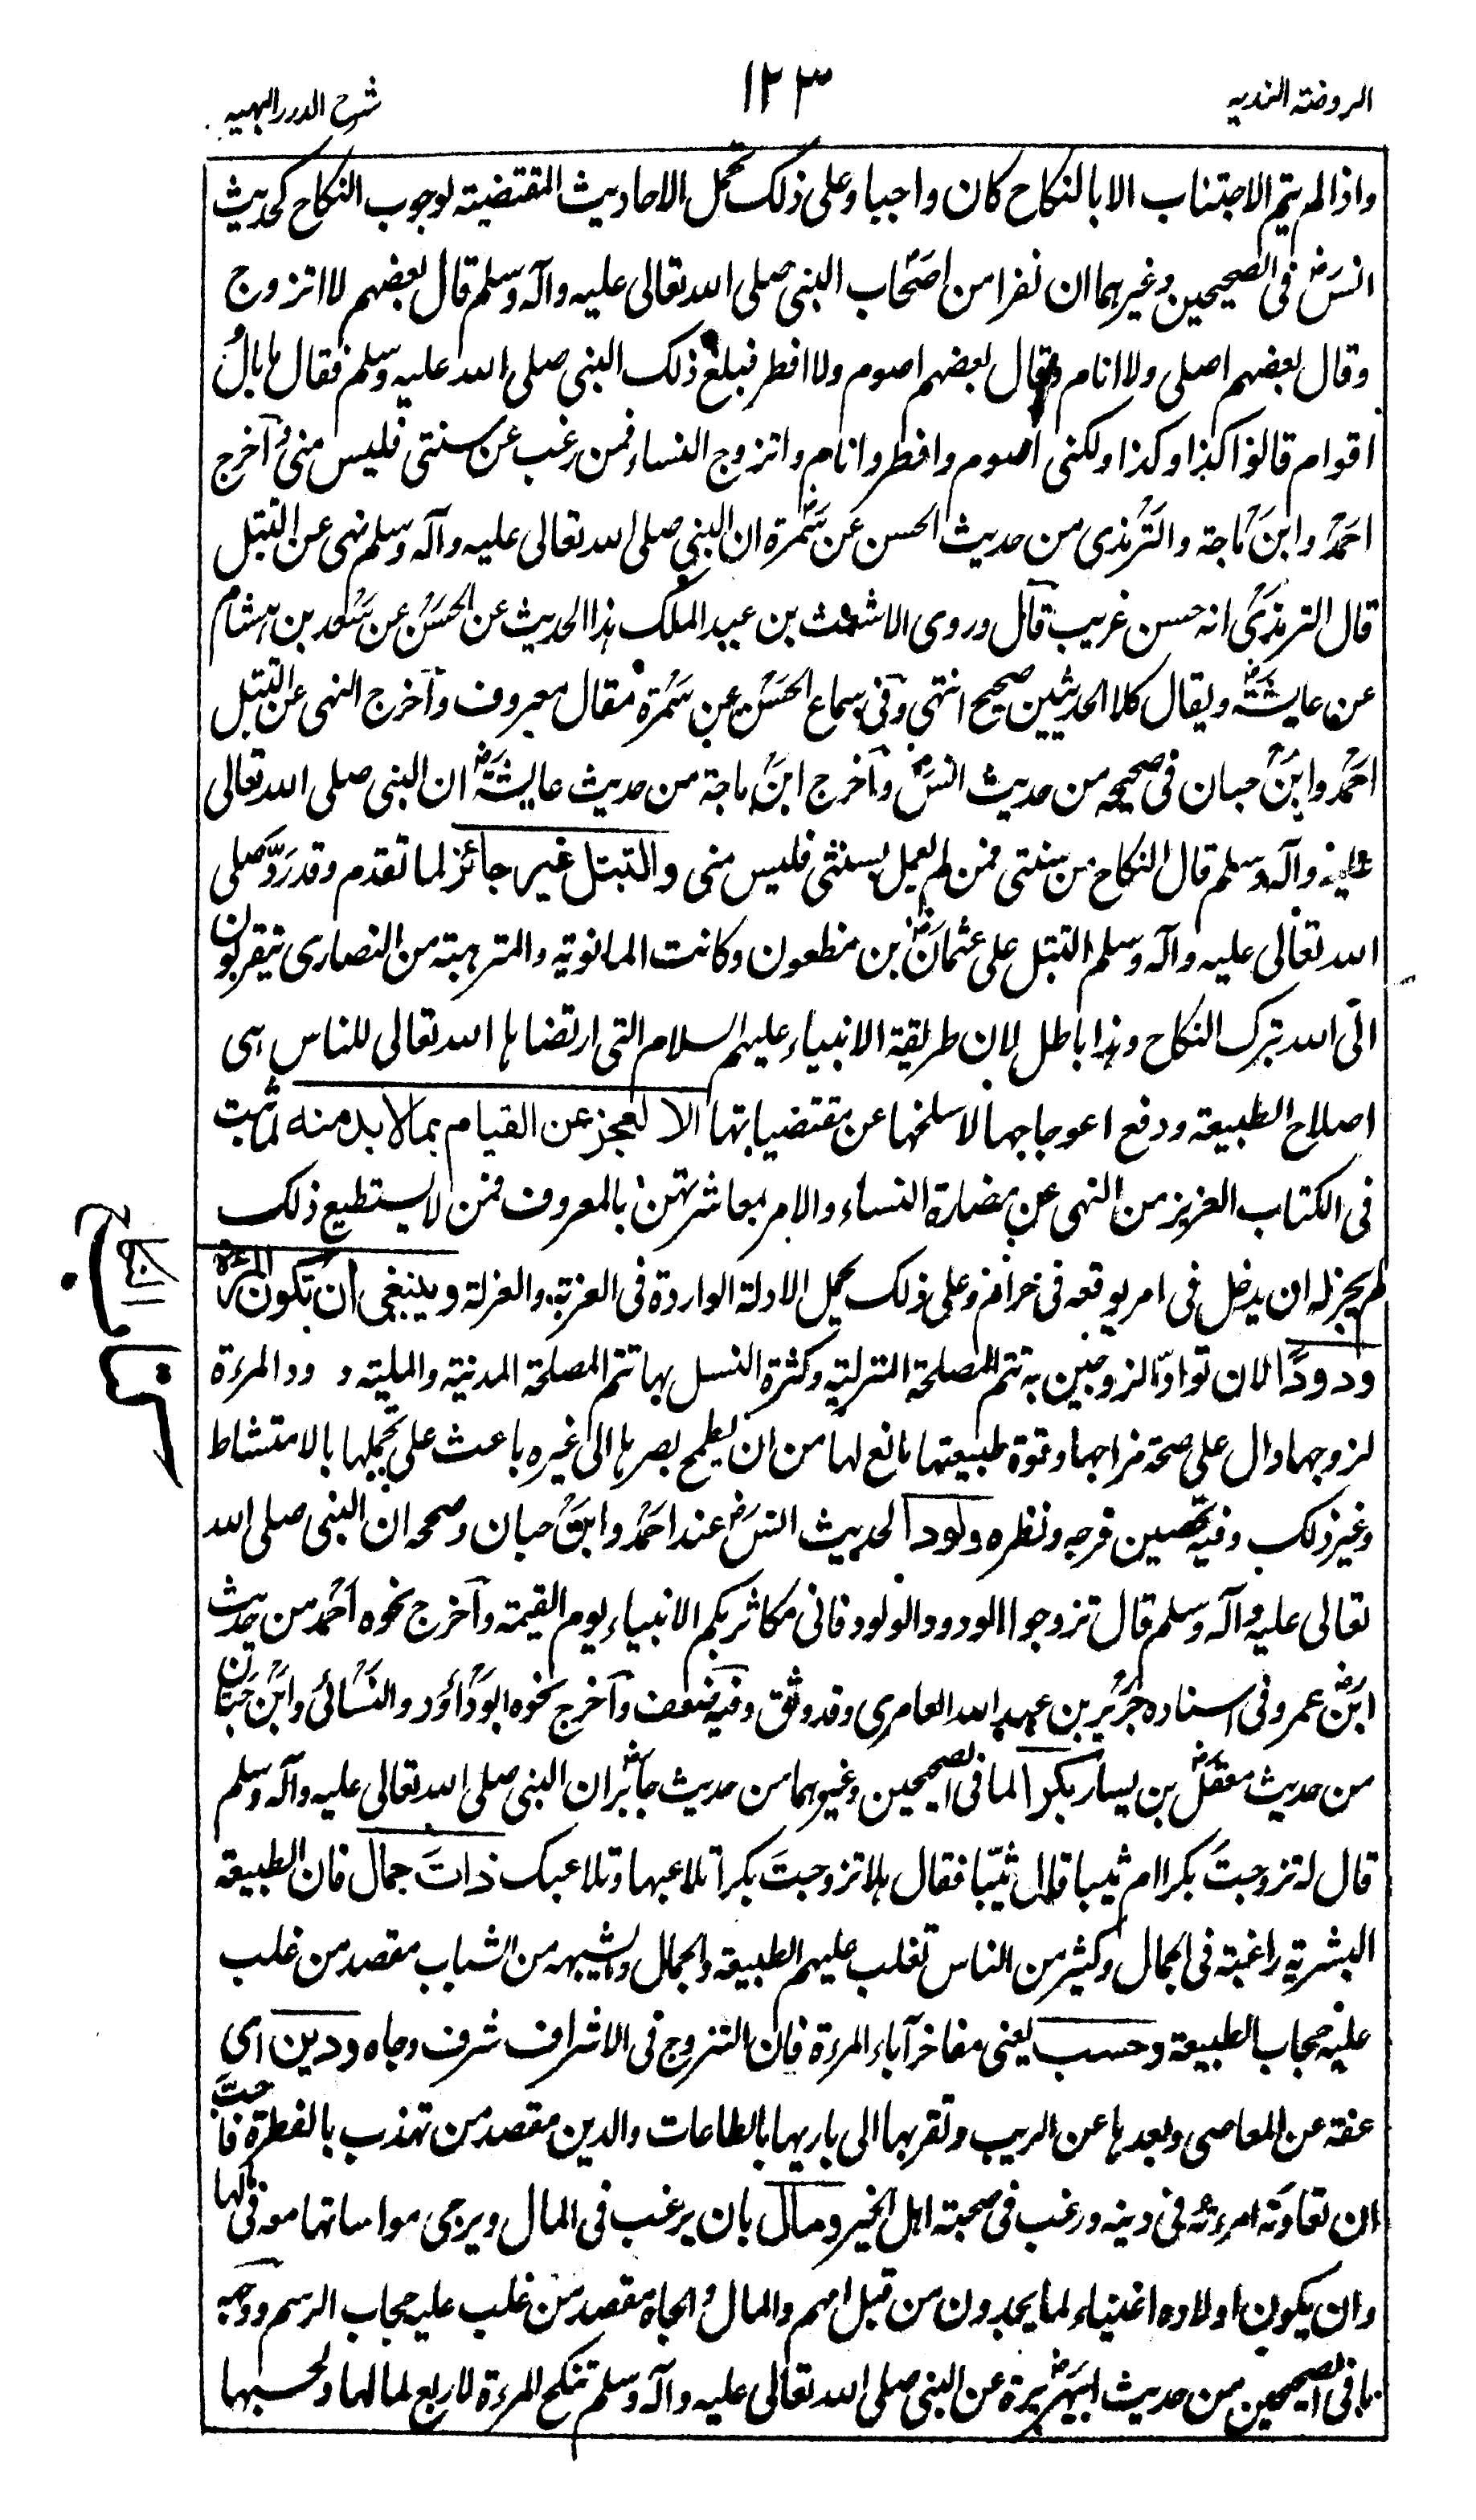 الروضة الندیه
۱۲۳
شرح الدرر البهیه
واذا لم یتم الاجتناب الا بالنکاح کان واجبا وعلی ذلک تحمل الاحادیث المقتضیة لوجوب النکاح کحدیث
انس رض فی الصحیحین وغیرهما ان نفرا من اصحاب النبی صلی الله تعالی علیه وآله وسلم قال بعضهم لا اتزوج
وقال بعضهم اصلی ولا انام وقال بعضهم اصوم ولا افطر فبلغ ذلک النبی صلی الله علیه وسلم فقال ما بالُ
اقوام قالوا کذا وکذا ولکنی اصوم وافطر وانام واتزوج النساء فمن رغب عن سنتی فلیس منی وآخرج
احمد وابن ماجة والترمذی من حدیث الحسن عن سمرة ان النبی صلی الله تعالی علیه وآله وسلم نهی عن التبتل
قال الترمذی انه حسن غریب قال وروی الاشعث بن عبد الملک هذا الحدیث عن الحسن عن سعد بن هشام
عن عایشة رض ویقال کلا الحدیثین صحیح انتهی وفی سماع الحسن عن سمرة مقال معروف وآخرج النهی عن التبتل
احمد وابن حبان فی صحیحه من حدیث انس وآخرج ابن ماجة من حدیث عایشة رض ان النبی صلی الله تعالی
علیه وآله وسلم قال النکاح من سنتی فمن لم یعمل بسنتی فلیس منی والتبتل غیر جائز لما تقدم وقد ردَّ صلی
الله تعالی علیه وآله وسلم التبتل علی عثمان رض بن مظعون وکانت المانویة والمترهبة من النصاری یتقربون
الی الله بترک النکاح وهذا باطل لان طریقة الانبیاء علیهم السلام التی ارتضاها الله تعالی للناس هی
اصلاح الطبیعة ودفع اعوجاجها لا سلخها عن مقتضیاتها الا لعجز عن القیام بما لا بد منه لما ثبت
فی الکتاب العزیز من النهی عن مضارة النساء والامر بمعاشرتهن بالمعروف فمن لا یستطیع ذلک
لم یجز له ان یدخل فی امر یوقعه فی حرام وعلی ذلک تحمل الادلة الواردة فی العزبة والعزلة وینبغی ان تکون المرءة
ودودًا لان توادّ الزوجین به تتم المصلحة المنزلیة وکثرة النسل بها تتم المصلحة المدنیة والملیة وود المرءة
لزوجها دال علی صحة مزاجها وقوة طبیعتها مانع لها من ان یطمح بصرها الی غیره باعث علی تجملها بالامتشاط
وغیر ذلک وفیه تحصین فرجه ونظره ولودا لحدیث انس رض عند احمد وابن حبان وصححه ان النبی صلی الله
تعالی علیه وآله وسلم قال تزوجوا الودود الولود فانی مکاثر بکم الانبیاء یوم القیمة وآخرج نحوه احمد من حدیث
ابن رض عمر وفی اسناده جریر بن عبد الله العامری وقد وثق وفیه ضعف وآخرج نحوه ابو داؤد والنسائی وابن حبان
من حدیث معقل رض بن یسار بکرا لما فی الصحیحین وغیرهما من حدیث جابر رض ان النبی صلی الله تعالی علیه وآله وسلم
قال له تزوجتَ بکرا ام ثیبا قال ثیّبا فقال هلا تزوجتَ بکرا تلاعبها وتلاعبک ذاتَ جمال فان الطبیعة
البشریة راغبة فی الجمال وکثیر من الناس تغلب علیهم الطبیعة والجمال وما یشبهه من الشباب مقصد من غلب
علیه حجاب الطبیعة وحسب یعنی مفاخر آباء المرءة فان التزوج فی الاشراف شرف وجاه ودین ای
عفة عن المعاصی وبعدها عن الریب وتقربها الی باریها بالطاعات والدین مقصد من تهذب بالفطرة فاحبَّ
ان تعاونه امرءته فی دینه ورغب فی صحبة اهل الخیر ومال بان یرغب فی المال ویرجی مواساتها معه فی مالها
وان یکون اولاده اغنیاء لما یجدون من قبل امهم والمال والجاه مقصد من غلب علیه حجاب الرسم ووجه
ما فی الصحیحین من حدیث ابیهریرة رض عن النبی صلی الله تعالی علیه وآله وسلم تنکح المرءة لاربع لمالها ولحسبها